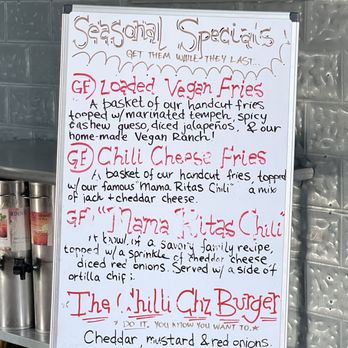 Seasonal Specials
GET THEM WHILE THEY LAST...
GF Loaded Vegan Fries
A basket of our handcut fries
topped w/marinated tempeh, spicy
cashew queso, diced jalapeños, & our
home-made Vegan Ranch!
GF Chili Cheese Fries
A basket of our handcut fries, topped
w/our famous "Mama Ritas Chili" a mix
of jack + cheddar cheese.
GF "Mama Ritas Chili"
bowl of a savory family recipe,
topped w/a sprinkle of cheddar cheese
diced red onions. Served w/a side of
tortilla chips.
The Chilli Chz Burger
DO IT, YOU KNOW YOU WANT TO.
Cheddar, mustard & red onions.